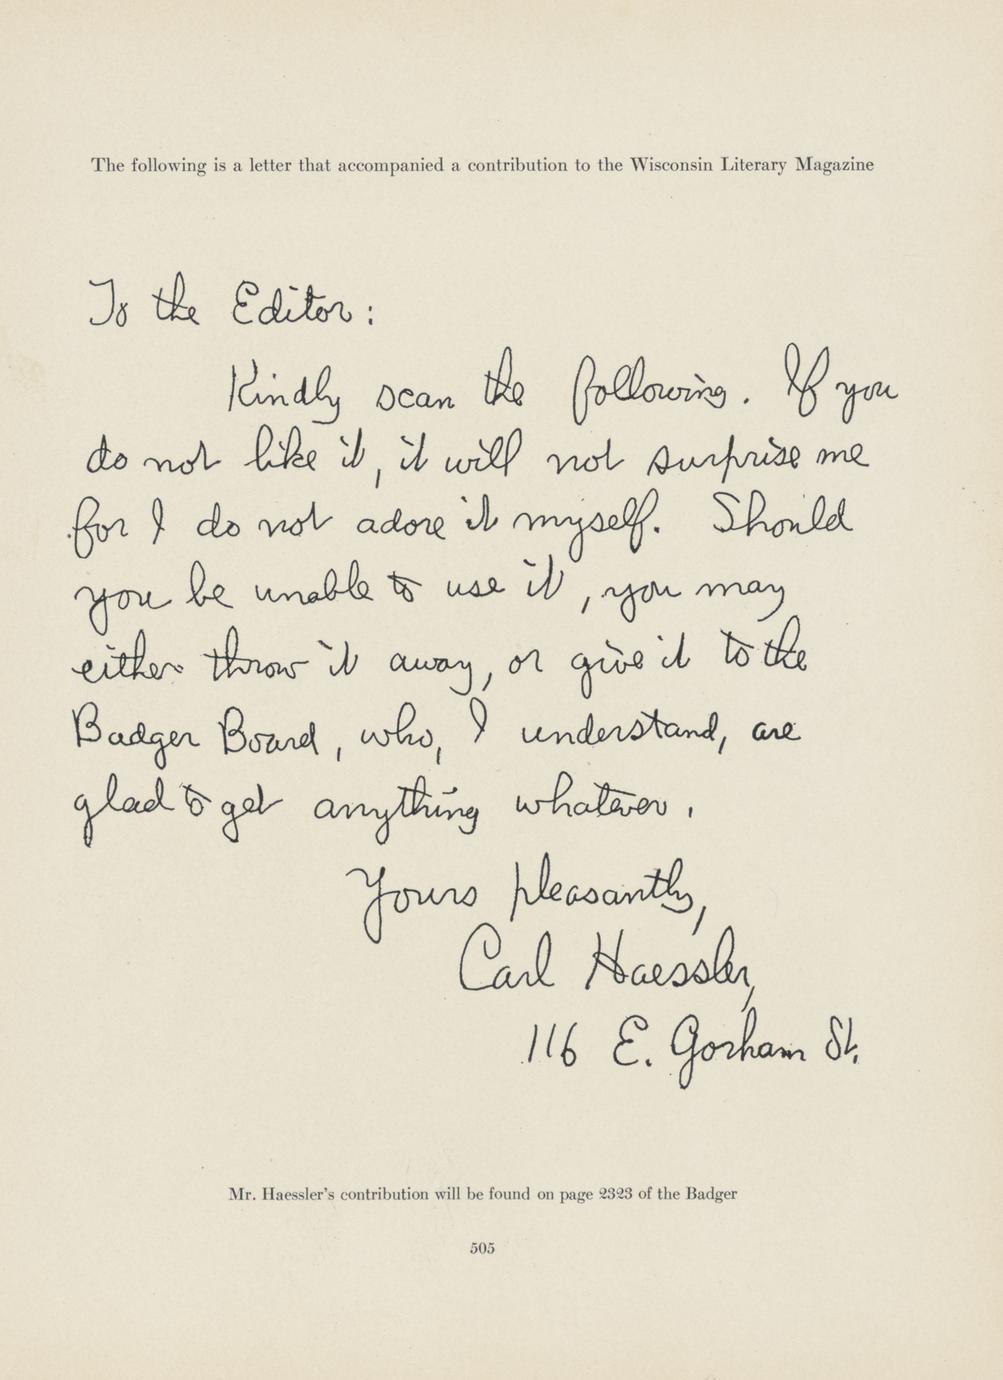 The following is a letter that accompanied a contribution to the Wisconsin Literary Magazine
To the Editor:
Kindly scan the following. If you
do not like it, it will not surprise me
for I do not adore it myself. Should
you be unable to use it, you may
either throw it away, or give it to the
Badger Board, who, I understand, are
glad to get anything whatever.
Yours pleasantly,
Carl Haessler,
116 E. Gorham St.
Mr. Haessler's contribution will be found on page 2323 of the Badger
505